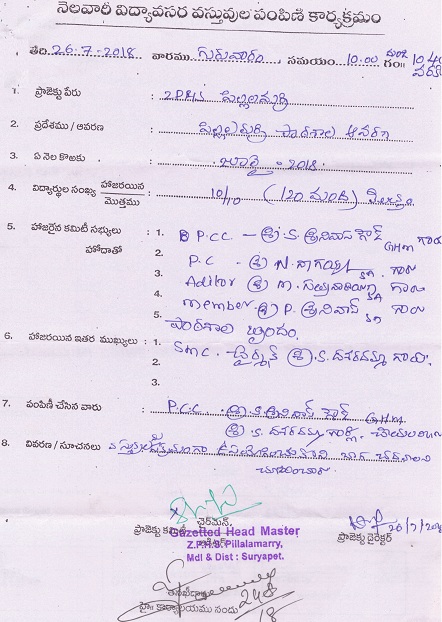 నెలవారీ విద్యావసర వస్తువుల పంపిణి కార్యక్రమం
తేది 26-7-2018 వారము గురువారం, సమయం 10.00 గం॥ 10.40
1. ప్రాజెక్టు పేరు : ZPHS పిల్లలమర్రి
2. ప్రదేశము / ఆవరణ : పిల్లలమర్రి పాఠశాల ఆవరణ
3. ఏ నెల కొఱకు : జూలై - 2018
4. విద్యార్థుల సంఖ్య హాజరయిన / మొత్తము : 10/10 (120 మంది)
5. హాజరైన కమిటీ సభ్యులు హోదాతో : 1. P.C.C. - శ్రీ. S. శ్రీనివాస్ గౌడ్ GHM గారు
2. P.C - శ్రీ N. నాగయ్య SA. గారు
3. Aditor శ్రీ M. సత్యనారాయణ SA గారు
4. member - శ్రీ P. శ్రీనివాస్ SA గారు
5. పాఠశాల బృందం.
6. హాజరయిన ఇతర ముఖ్యులు : 1. SMC - చైర్మన్ శ్రీ K. దశరథమ్మ గారు.
2.
3.
7. పంపిణీ చేసిన వారు : P.C.C. శ్రీ S. శ్రీనివాస్ గౌడ్ GHM
శ్రీ K. దశరథమ్మ గార్ల
8. వివరణ / సూచనలు బాగా చదవాలని
సూచించారు
చైర్మన్,
ప్రాజెక్టు కమిటీ
ప్రాజెక్టు డైరెక్టర్
Gazetted Head Master
Z.P.H.S. Pillalamarry,
Mdl & Dist : Suryapet.
26/7/2018
కార్యాలయము నందు